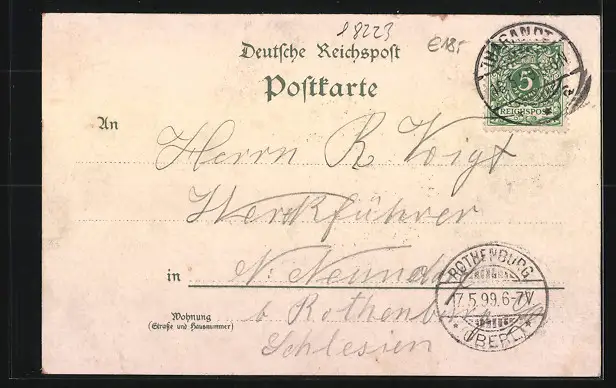 18223
€18,-
Deutsche Reichspost
Postkarte
THARANDT
5
REICHSPOST
An
Herrn R. Voigt
Werkführer
in N. Neundorf
b. Rothenburg
Schlesien
Wohnung
(Straße und Hausnummer)
ROTHENBURG
17.5.99.6-7V.
* (OBERL.) *